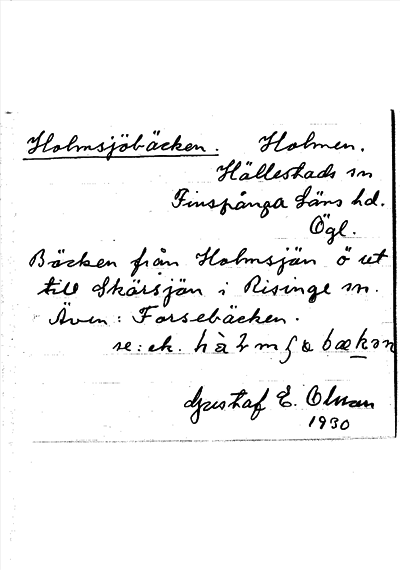 Holmsjöbäcken. Holmen.
Hällestads sn
Finspånga läns hd.
Ögl.
Bäcken från Holmsjön ö ut
till Skärsjön i Risinge sn.
Även: Forsebäcken.
se: ek.
Gustaf E. Olman
1930